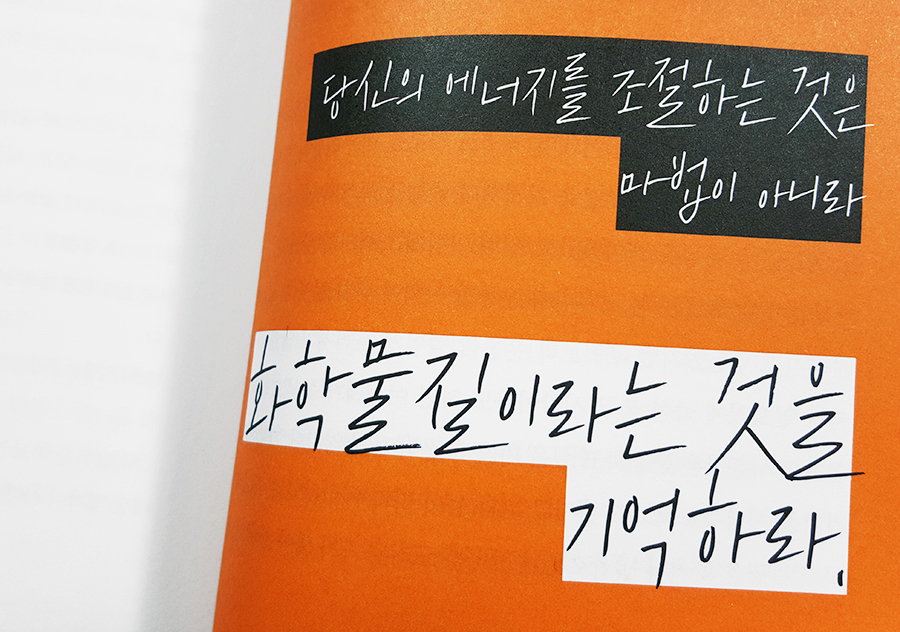 당신의 에너지를 조절하는 것은
마법이 아니라
화학물질이라는 것을
기억하라.